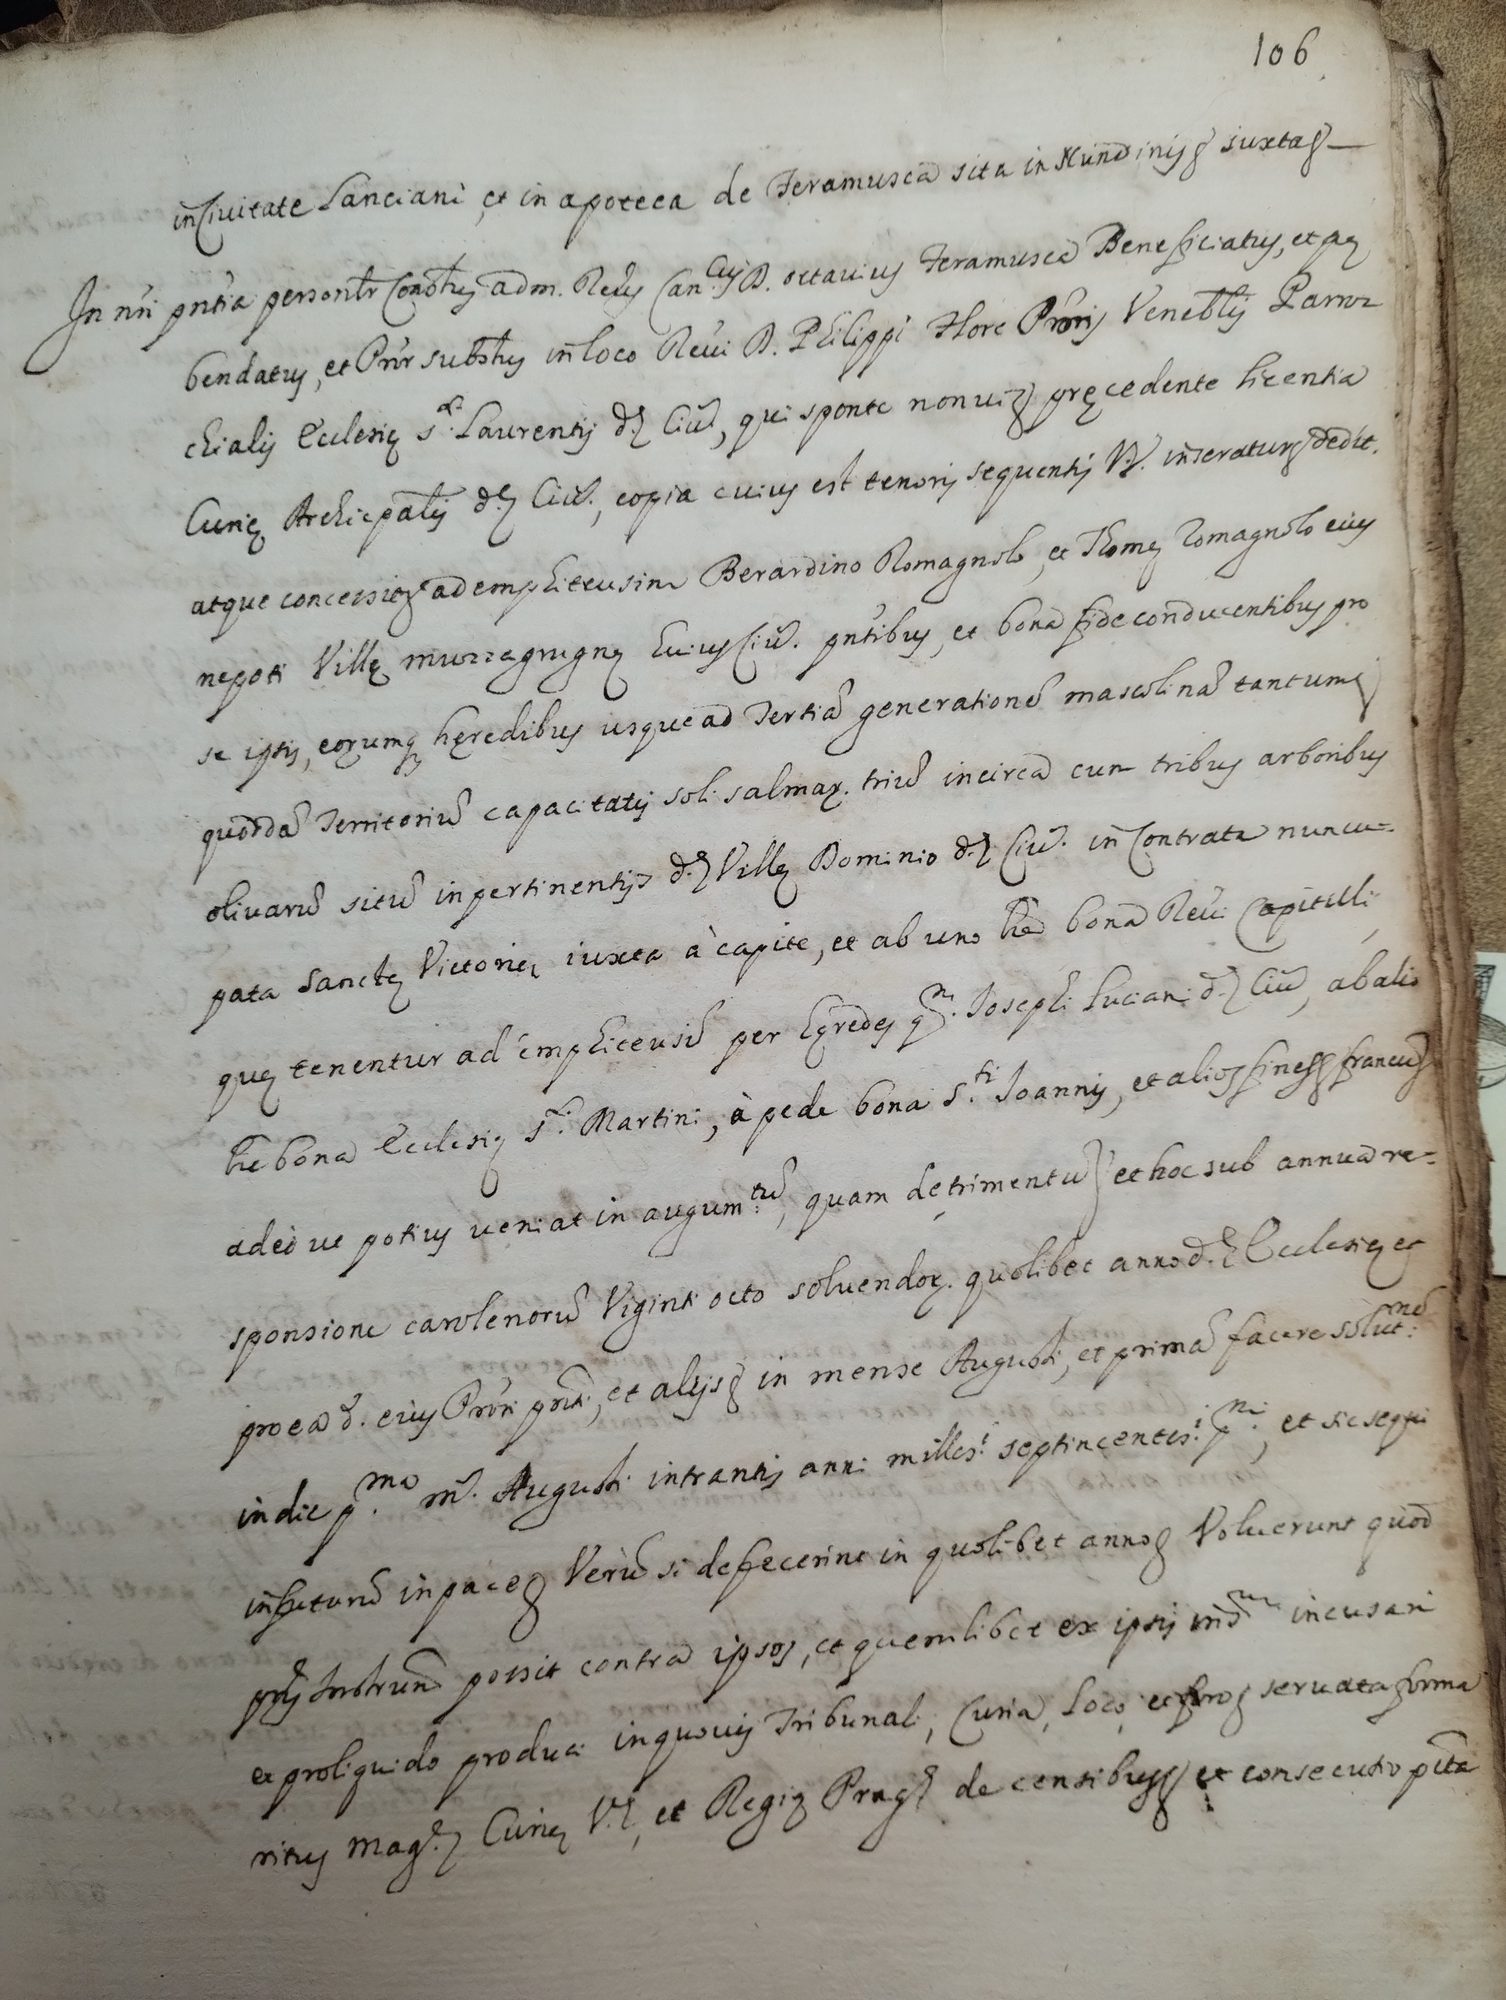 106
in Civitate Lanciani, et in apoteca de Feramusca sita in Nundinis iuxta
In nr̃i pñtia personlr̃ Constus adm. Reus Can.cus D. octavius Feramusca Beneficiatus, et
bendatus, et Prõr substus in loco Reũi D. Philippi Flore Prõris Venebĩlis Parro=
chialis Ecclesię S.ti Laurentij d.ę Ciũ., qui sponte non vi pręcedente licentia
Curię Archiepalis d.ę Ciũ., copia cuius est tenoris sequentis Vz. inseratur dedit,
atque concessit ad emphiteusim Berardino Romagnolo, et Thomę Romagnolo eius
nepoti Villę mozzagrugnę huius Ciũ. pñtibus, et bona fide conducentibus pro
se ipsis, eorumq hęredibus usque ad Tertiã generationẽ masculinã tantum
quoddã Territoriũ capacitatis soli salmar. triũ incirca cum tribus arboribus
olivarũ sitũ in pertinentijs d.ę Villę Dominio d.ę Ciũ. in Contrata nuncu=
pata Sanctę Victorię iuxta à capite, et ab uno bona Reũi Capituli,
quę tenentur ad emphiteusĩ per hęredes qm. Josephi Luciani d.ę Ciũ, ab alio
bona Ecclesię S.ti Martini, à pede bona S.ti Joannis, et alios fines francũ
adeò ut potius veniat in augum.tũ, quam detrimentũ et hoc sub annua re=
sponsione carolenorũ Viginti octo solvendor. quolibet anno d.ę Ecclesię et
pro ea d. eius Prõri pñti, et alijs in mense Augusti, et primã facere solut.nẽ
in die p.ma m. Augusti intrantis anni milles.i septincentes.i p.mi, et sic sequi
in futurũ in pace Verũ si defecerint in quolibet anno Voluerunt quod
pñs Instrum possit contra ipsos, et quemlibet ex ipsis incusari
et pro liquido produci in quovis Tribunali, Curia, loco, et foro servata forma
ritus Mag.ę Curię V.ę, et Regię Prag.ę de censibus et consecutio